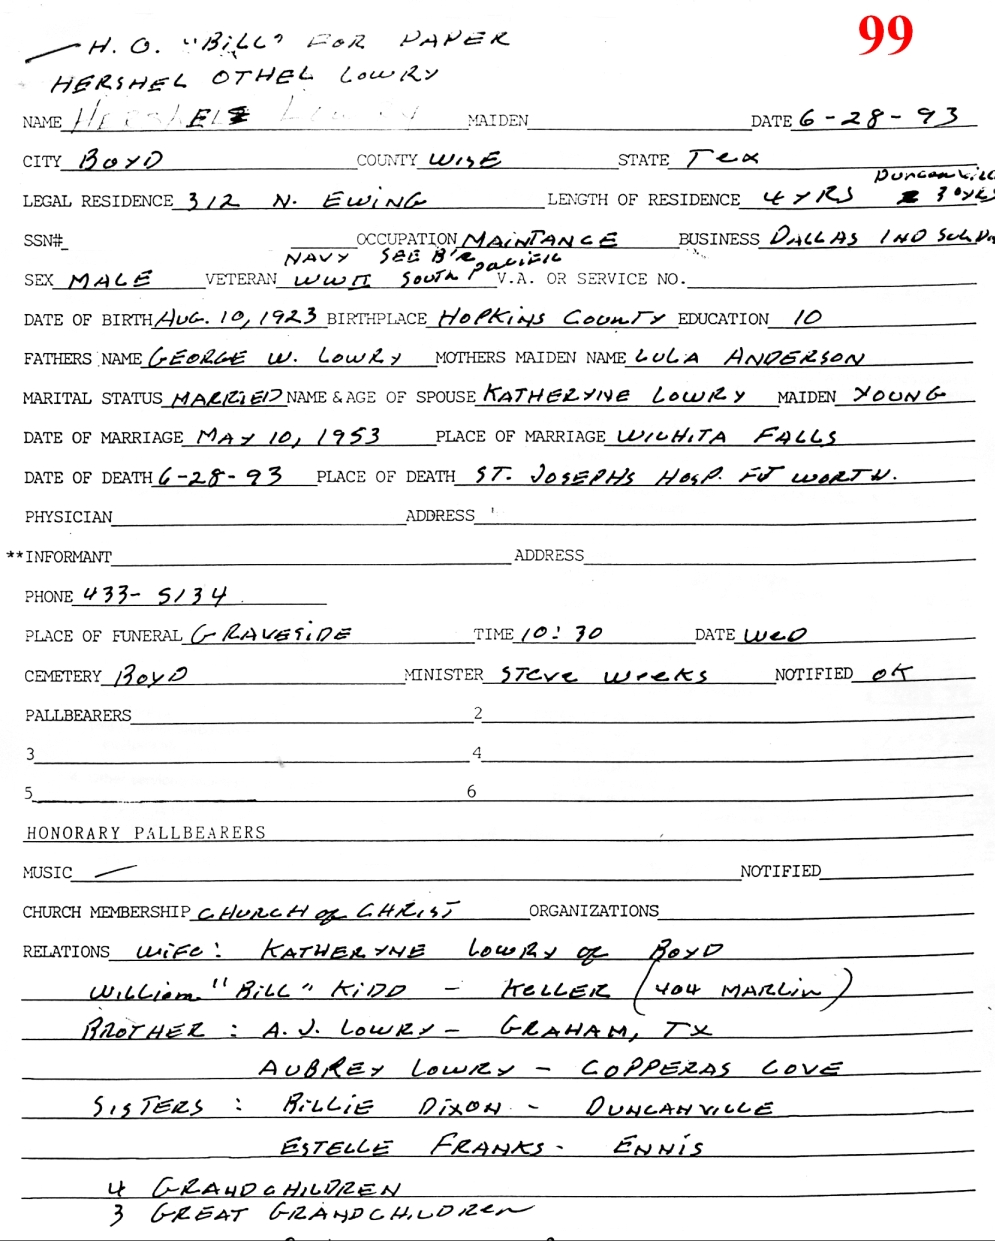 99
H. O. "BILL" FOR PAPER
HERSHEL OTHEL LOWRY
NAME HERSHEL LOWRY MAIDEN DATE 6-28-93
CITY BOYD COUNTY WISE STATE Tex
Duncanville
LEGAL RESIDENCE 312 N. EWING LENGTH OF RESIDENCE 4 YRS 30 YRS
SSN# OCCUPATION MAINTANCE BUSINESS DALLAS IND Sch
NAVY SEE B'S
SEX MALE VETERAN WWII South Pacific V.A. OR SERVICE NO.
DATE OF BIRTH AUG. 10, 1923 BIRTHPLACE HOPKINS COUNTY EDUCATION 10
FATHERS NAME GEORGE W. LOWRY MOTHERS MAIDEN NAME LULA ANDERSON
MARITAL STATUS MARRIED NAME & AGE OF SPOUSE KATHERYNE LOWRY MAIDEN YOUNG
DATE OF MARRIAGE MAY 10, 1953 PLACE OF MARRIAGE WICHITA FALLS
DATE OF DEATH 6-28-93 PLACE OF DEATH ST. JOSEPHS HOSP. FT WORTH.
PHYSICIAN ADDRESS
**INFORMANT ADDRESS
PHONE 433-5134
PLACE OF FUNERAL GRAVESIDE TIME 10:30 DATE WED
CEMETERY BOYD MINISTER STEVE WEEKS NOTIFIED OK
PALLBEARERS 2
3 4
5 6
HONORARY PALLBEARERS
MUSIC NOTIFIED
CHURCH MEMBERSHIP CHURCH OF CHRIST ORGANIZATIONS
RELATIONS WIFE: KATHERYNE LOWRY OF BOYD
WILLIAM "BILL" KIDD - KELLER (404 MARLIN)
BROTHER : A. J. LOWRY - GRAHAM, TX
AUBREY LOWRY - COPPERAS COVE
SISTERS : BILLIE DIXON - DUNCANVILLE
ESTELLE FRANKS - ENNIS
4 GRANDCHILDREN
3 GREAT GRANDCHILDREN